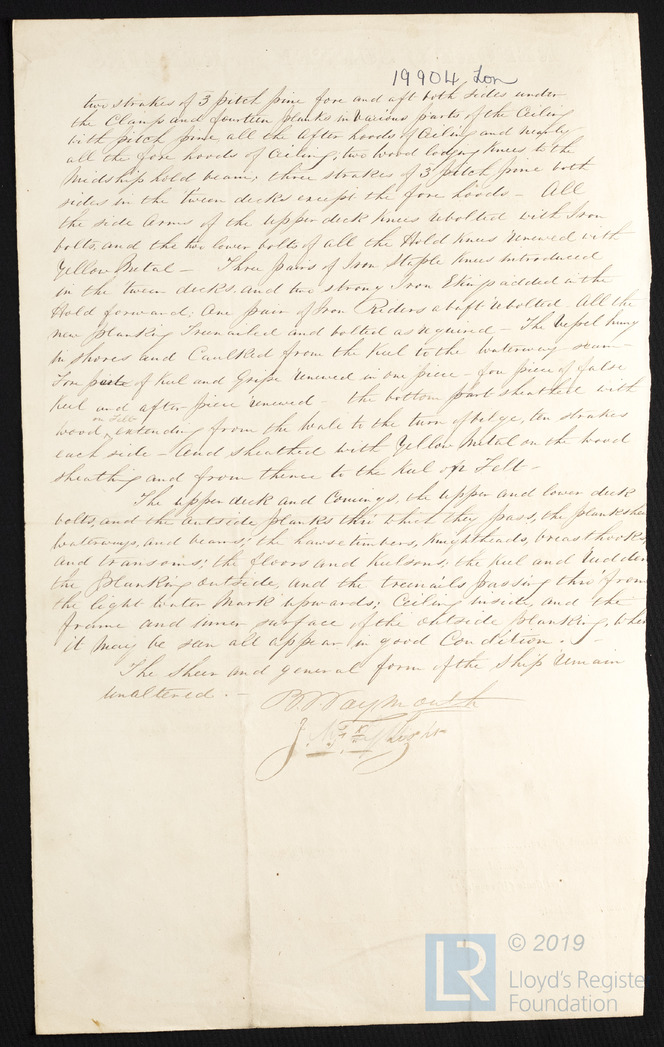 19904 Lon
two strakes of 3 pitch pine fore and aft both sides under
the Clamp and fourteen planks in various parts of the Ceiling
with pitch pine all the after hoods of Ceiling and nearly
all the fore hoods of Ceiling; two wood lodging knees to the
Midship hold beam; three strakes of 3 pitch pine both
sides in the tween decks except the fore hoods - All
the side arms of the upper deck knees rebolted with Iron
bolts, and the two lower bolts of all the Hold knees renewed with
Yellow Metal - Three pairs of Iron Staple knees introduced
in the tween decks and two strong Iron Ekings added in the
Hold forward; One pair of Iron Riders abaft rebolted - All the
new planking Treenailed and bolted as required - The Vessel hung
in shores and Caulked from the Keel to the waterway seam -
Fore of Keel and Gripe renewed in one piece - fore piece of false
Keel and after piece renewed - the bottom part sheathed with
on Felt
wood extending from the Wale to the turn of bilge, ten strakes
each side - And sheathed with Yellow Metal on the wood
sheathing and from thence to the Keel over Felt -
The upper deck and Comings, the upper and lower deck
bolts, and the outside planks thro which they pass, the planksheer
waterways, and beams; the hawse timbers, Knightheads, breasthooks
and transoms; the floors and Keelsons; the keel and rudder
the planking outside, and the treenails passing thro from
the light water mark upwards; Ceiling inside, and the
frame and inner surface of the outside planking, when
it may be seen all appear in good Condition. -
The Sheer and general form of the Ship remain
unaltered. -
B. Waymouth
J.
LR
© 2019
Lloyd's Registe
Foundation